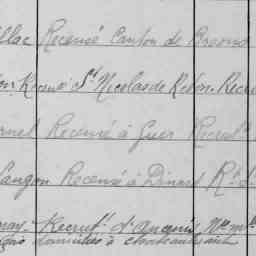 llac Recensé Canton de Broons
Recensé St Nicolas de Redon. Recru
rnel Recensé à Guer Recrut
Langon Recensé à Dinard Rt d
Recrut. d'Ancenis Nle
domiciliés à Chateaubriant